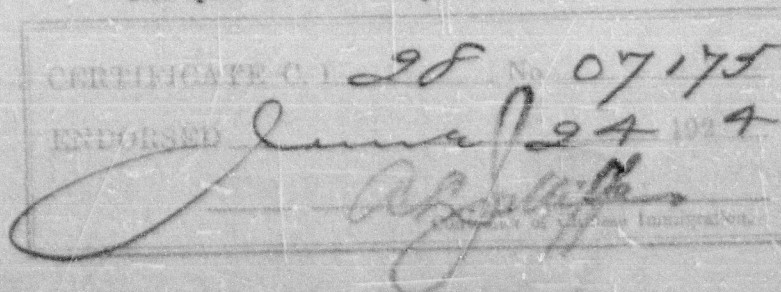 CERTIFICATE C. I. 28 No 07175
ENDORSED June 24 1924
of Chinese Immigration.